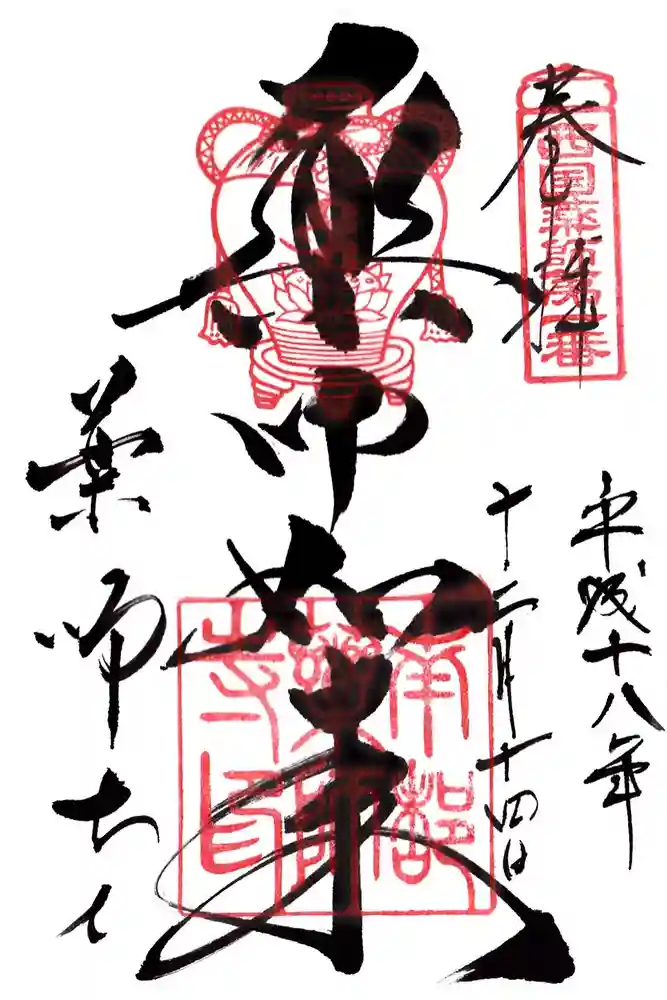 奉拝
西国薬師第一番
平成十八年
十二月十四日
薬師如来
南都
薬師
寺印
薬師寺